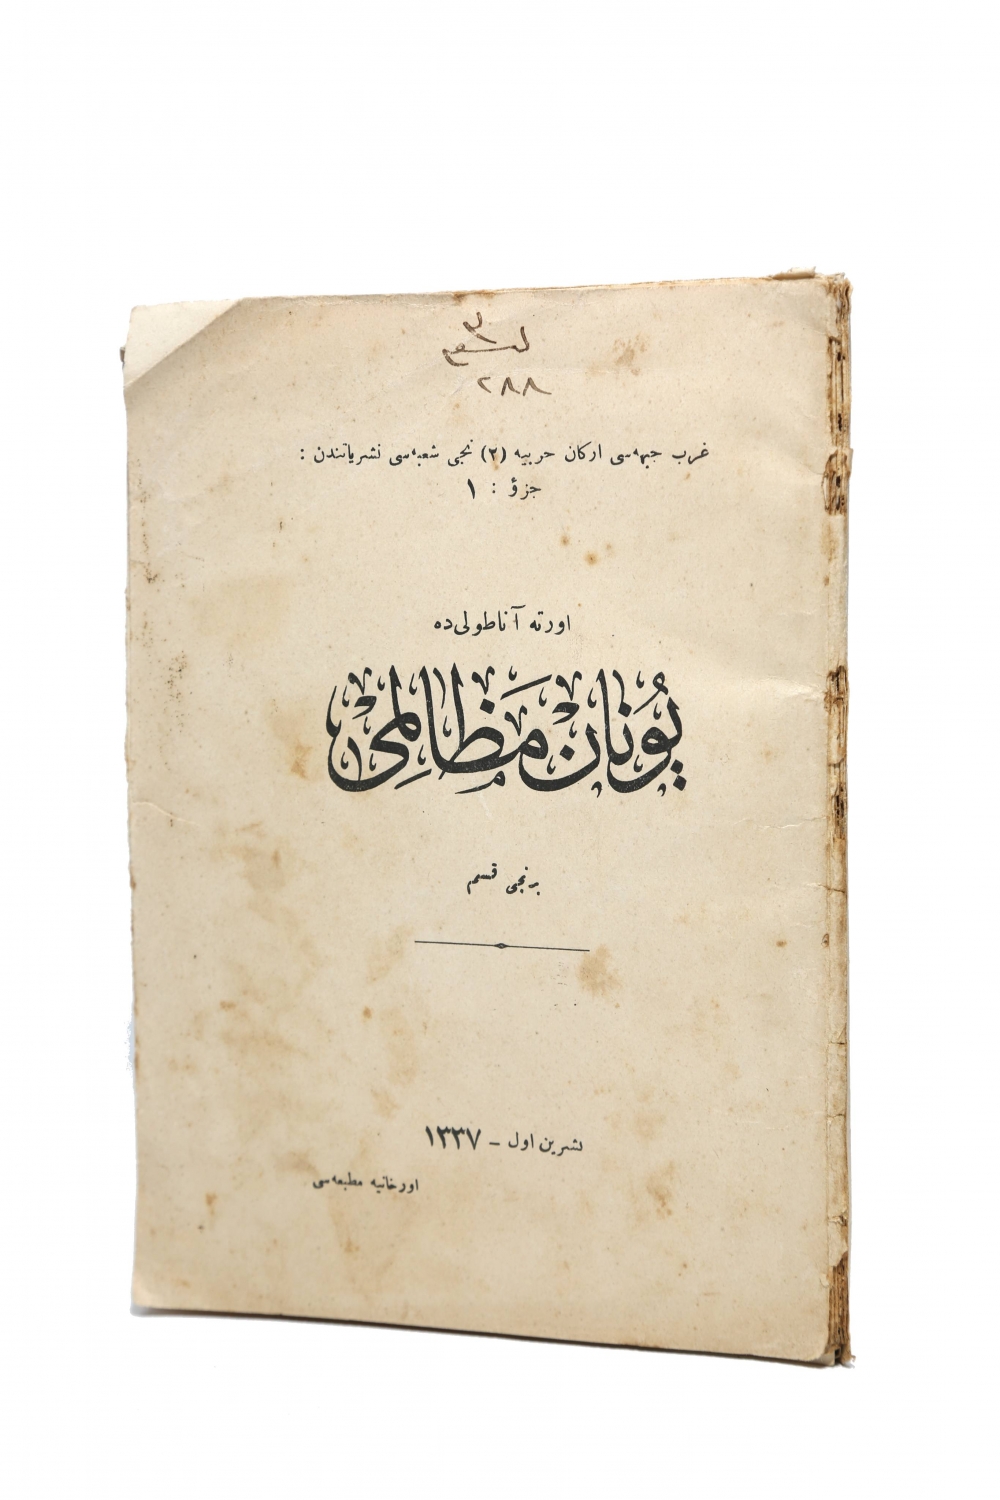 ٢٨٨
غرب جبهه‌سی اركان حربیه (٢) نجی شعبه‌سی نشریاتندن :
جزؤ : ١
اورته آناطولی‌ده
یُونان مَظالمی
برنجی قسم
تشرین اول - ١٣٣٧
اورخانیه مطبعه‌سی